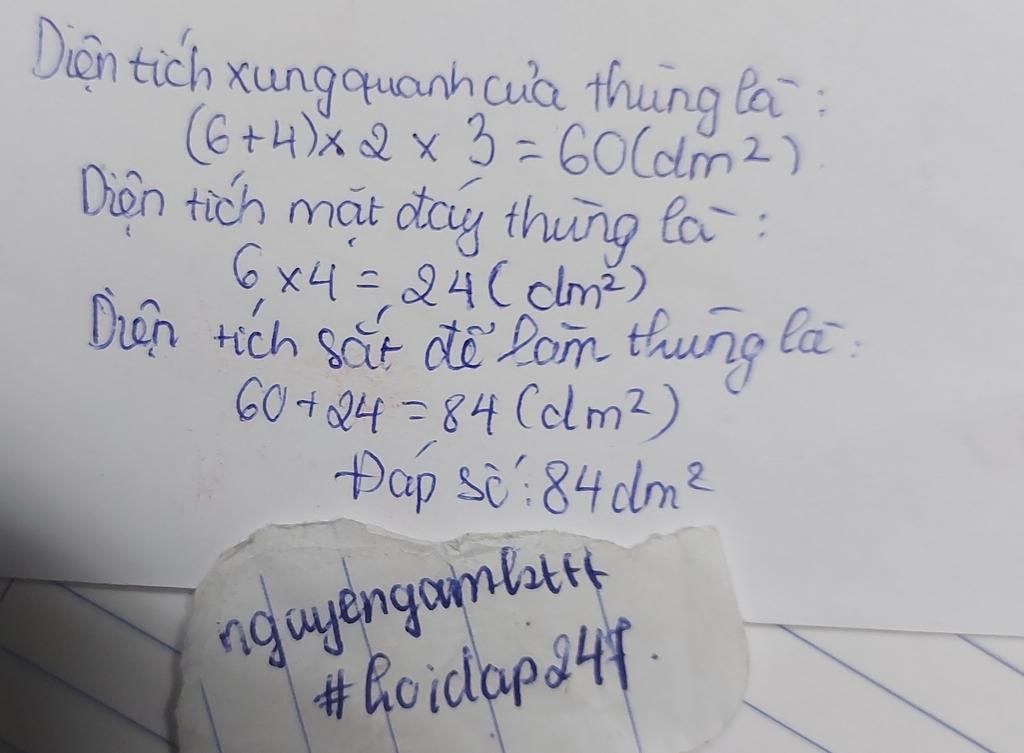 Diện tích xung quanh của thùng là:
(6+4)x 2 x 3 = 60(dm²)
Diện tích mặt đáy thùng là:
6 x 4 = 24( dm²)
Diện tích sắt để làm thùng là:
60 + 24 = 84 (dm²)
Đáp số: 84dm²
#hoidap247.